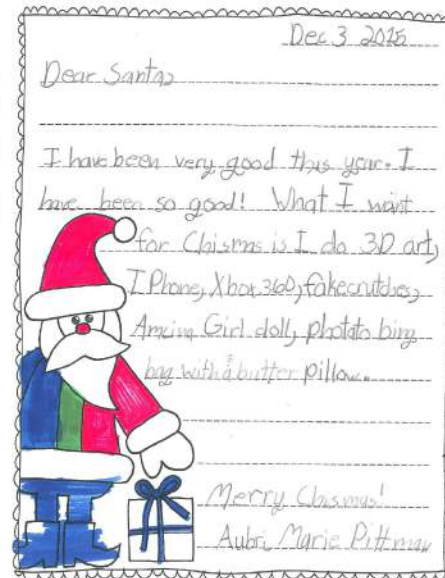 Dec 3 2015
Dear Santa
I have been very good this year. I
have been so good! What I wint
for Chismas is I do 3D art,
I Phone, Xbox 360, fake crutches,
Amcina Girl doll, photato bing
bag with a butter pillow.
Merry Chismas!
Aubri Marie Pittman